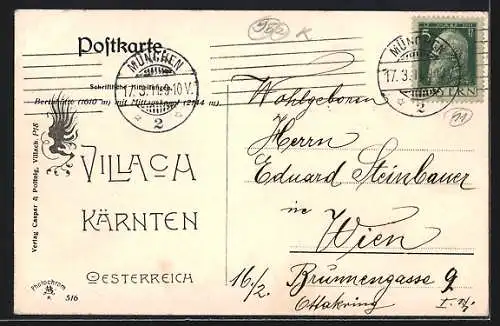 Postkarte.
Schriftliche Mitteilungen
Bertahütte (1610 m) mit Mittagskogel (2144 m)
MÜNCHEN
17. 3. 11. 9-10 V.
2
MÜNCHEN
17. 3.
2
5
VILLACH
KÄRNTEN
OESTERREICH
Photochrom
516
Wohlgeboren
Herrn
Eduard Steinbauer
in
Wien
16/2. Brunnengasse 9
Ottakring